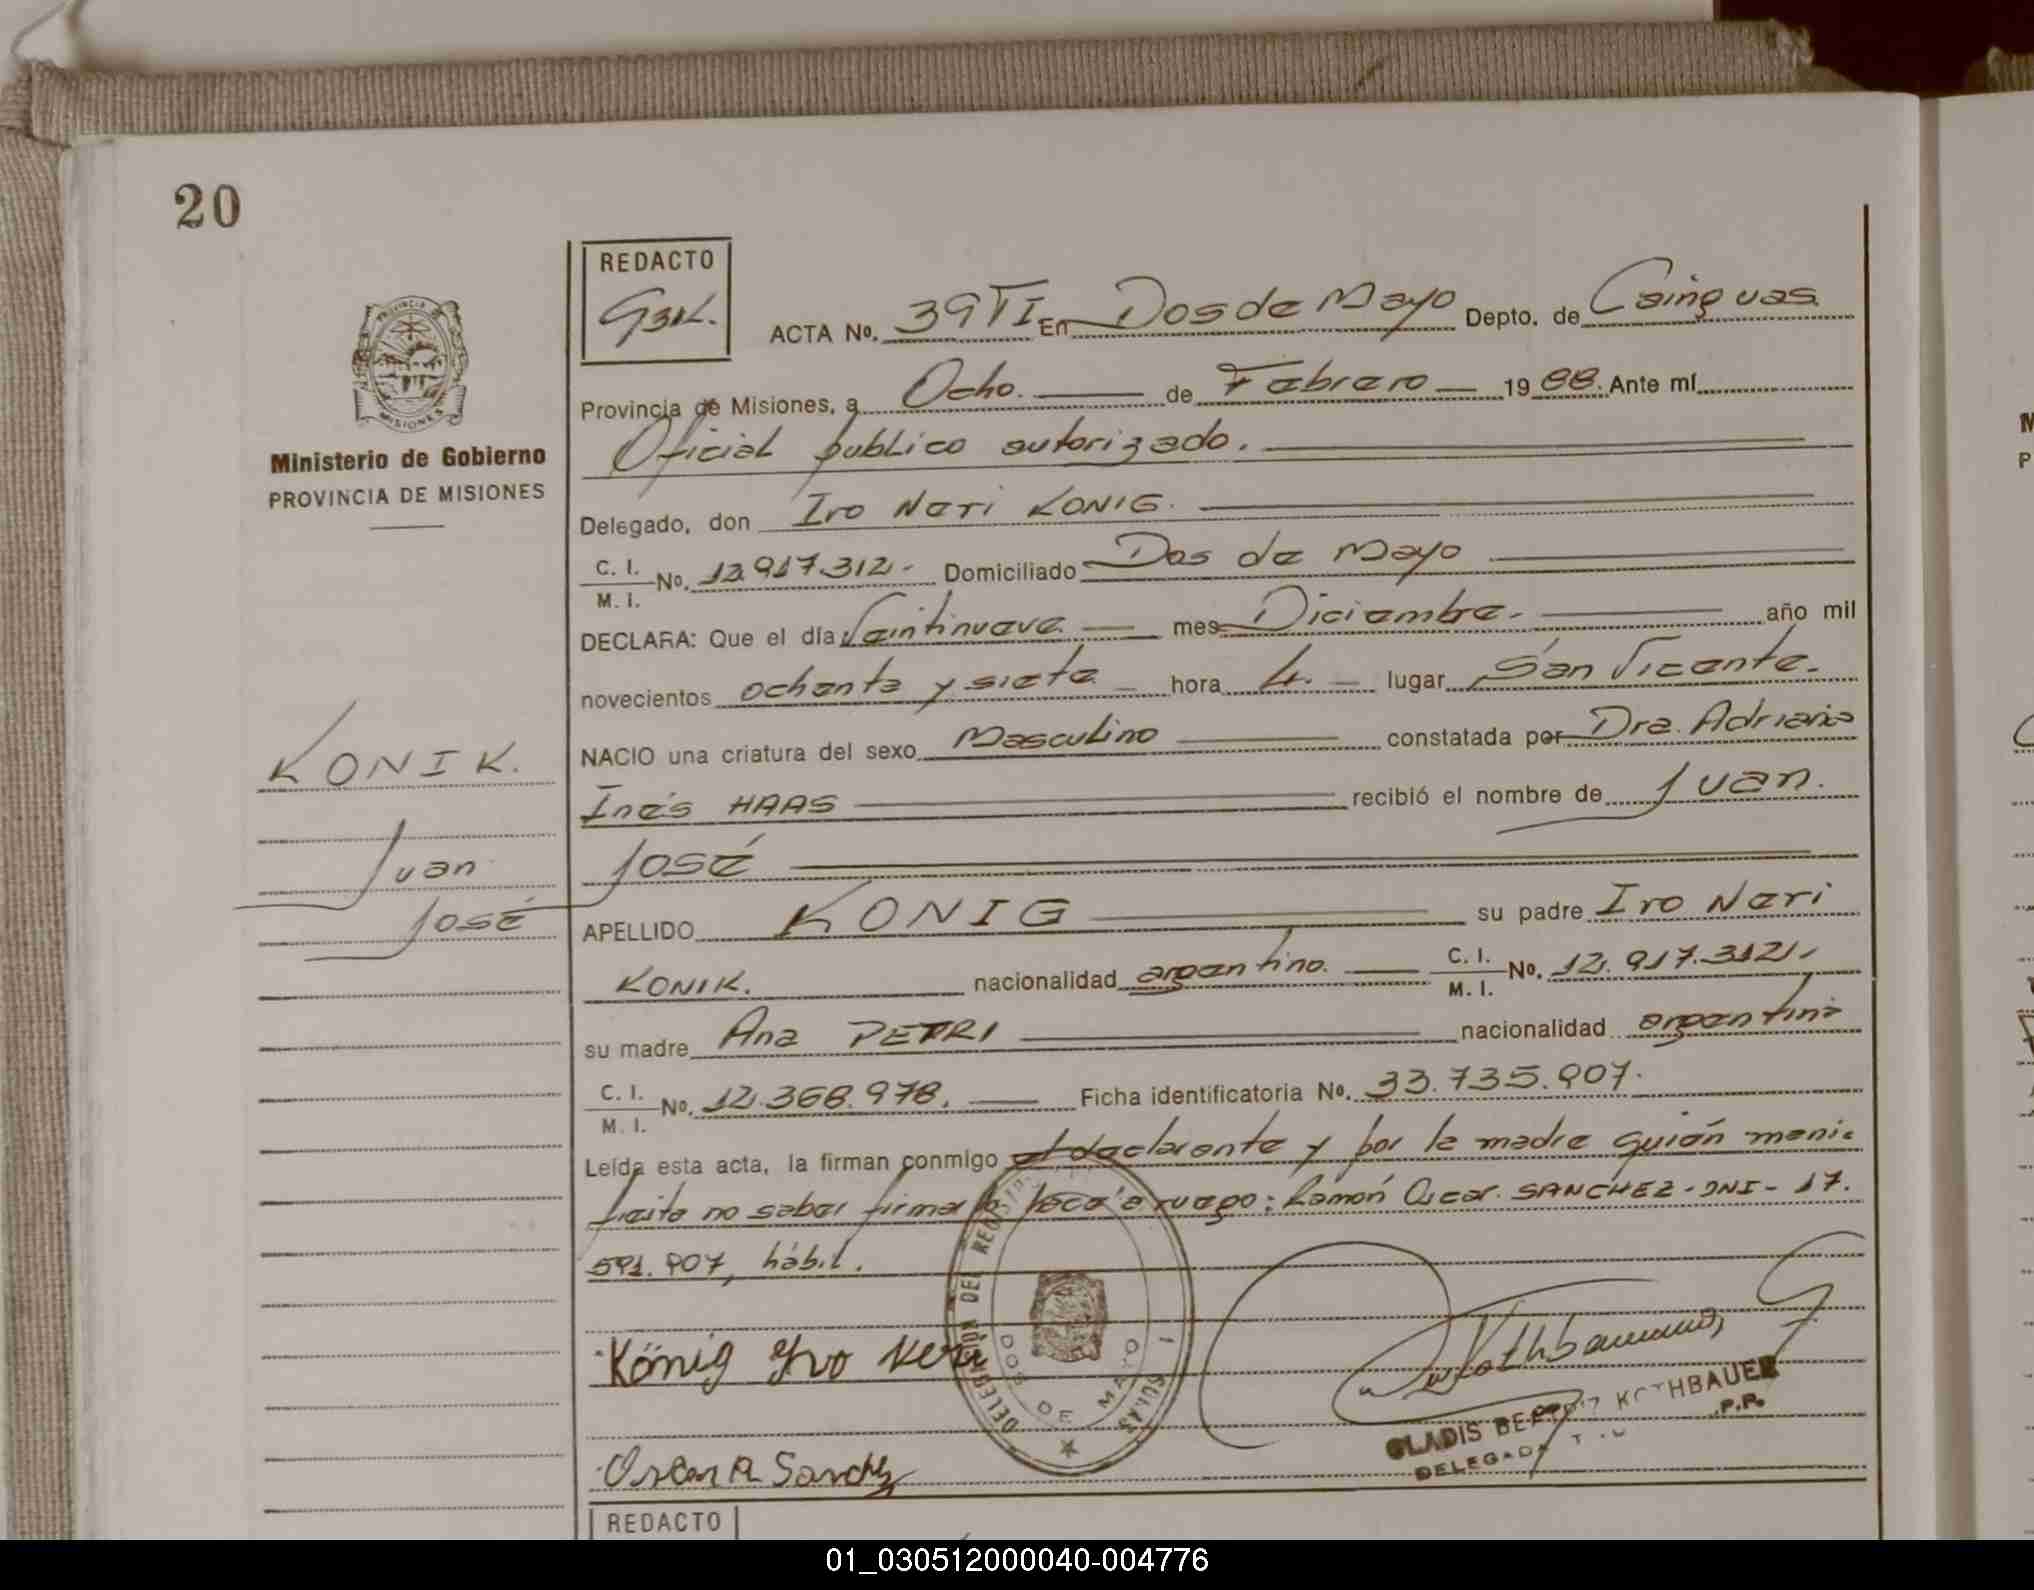 20
REDACTO
PROVINCIA DE MISIONES
ACTA No. 39 TI En Dos de Mayo Depto. de Cainguas
Provincia de Misiones, a Ocho. de Febrero 1988. Ante mí
Ministerio de Gobierno
Oficial publico autorizado.
PROVINCIA DE MISIONES
Delegado, don Iro Neri KONIG.
C. I.
M. I. No. 12.917.312.- Domiciliado Dos de Mayo
DECLARA: Que el día Veintinueve mes Diciembre.- año mil
novecientos ochenta y siete hora 4. lugar San Vicente.
KONIK.
NACIO una criatura del sexo Masculino constatada por Dra. Adriana
Inés HAAS recibió el nombre de Juan.
Juan
José
José
APELLIDO KONIG su padre Iro Neri
KONIK. nacionalidad argentino. C. I. M. I. No. 12.917.312.
su madre Ana PETRI nacionalidad argentina
C. I. M. I. No. 12.368.978. Ficha identificatoria No. 33.735.907.
Leída esta acta, la firman conmigo el declarante y por la madre quién mani-
fiesta no saber firmar lo hace a ruego: Ramón Oscar SANCHEZ-DNI-17.
591.907, hábil.
König Yvo Neri
DELEGACIÓN DEL
DOS DE MAYO
Kothbauer
GLADIS KOTHBAUER
DELEGADA P.P.
Oscar R Sanchez
REDACTO
01_030512000040-004776